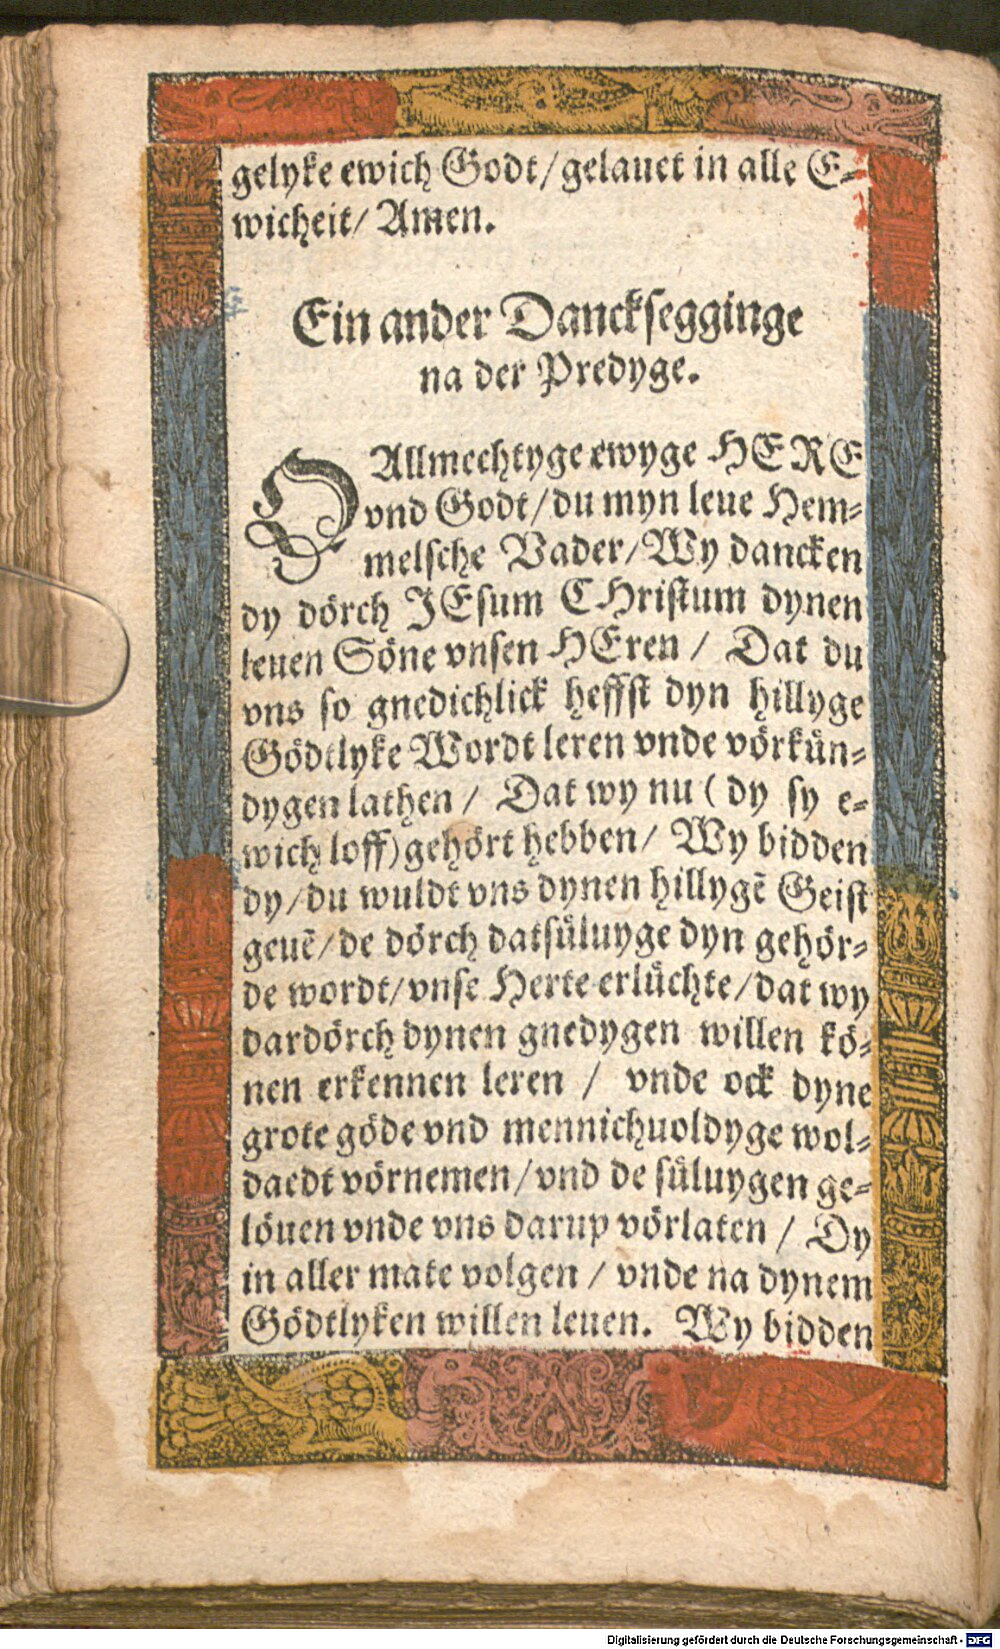 gelyke ewich Godt/gelauet in alle E-
wicheit/ Amen.
Ein ander Dancksegginge
na der Predyge.
O Allmechtyge ewyge HERE
vnd Godt/du myn leue Hem-
melsche Vader/Wy dancken
dy dörch JEsum CHristum dynen
leuen Söne vnsen HEren / Dat du
vns so gnedichlick heffst dyn hillyge
Gödtlyke Wordt leren vnde vörkün-
dygen lathen / Dat wy nu ( dy sy e-
wich loff)gehört hebben/ Wy bidden
dy/du wuldt vns dynen hillygē Geist
geuē/de dörch datsüluyge dyn gehör-
de wordt/vnse Herte erlüchte/dat wy
dardörch dynen gnedygen willen kö-
nen erkennen leren / vnde ock dyne
grote göde vnd mennichuoldyge wol-
daedt vörnemen/vnd de süluygen ge-
löuen vnde vns darup vörlaten / Dy
in aller mate volgen / vnde na dynem
Gödtlyken willen leuen. Wy bidden
Digitalisierung gefördert durch die Deutsche Forschungsgemeinschaft - DFG